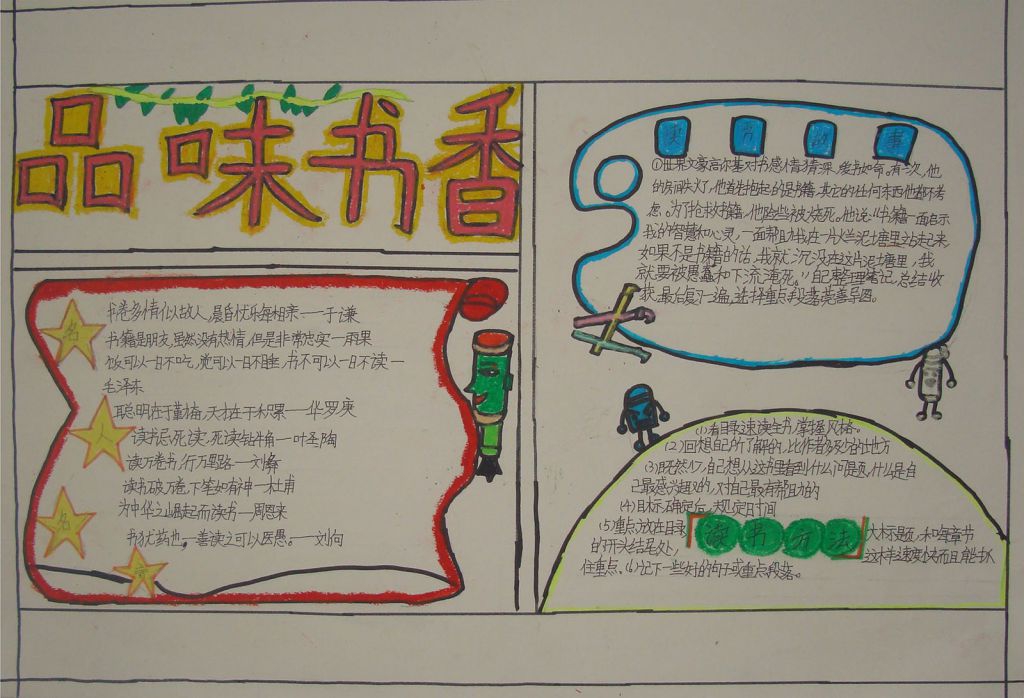 品味书香
名人名言
书卷多情似故人,晨昏忧乐每相亲——于谦
书籍是朋友,虽然没有热情,但是非常忠实—雨果
饭可以一日不吃,觉可以一日不睡,书不可以一日不读—
毛泽东
聪明在于勤奋,天才在于积累—华罗庚
读书忌死读,死读钻牛角—叶圣陶
读万卷书,行万里路—刘彝
读书破万卷,下笔如有神—杜甫
为中华之崛起而读书—周恩来
书犹药也,善读之可以医愚。—刘向
读书故事
①世界文豪高尔基对书感情猜深,爱书如命。有一次,他
的房间失火了,他首先抱起的是书籍,其它的任何东西他都不考
虑。为了抢救书籍,他险些被烧死。他说:“书籍一面启示
我的智慧和心灵,一面帮助我在一片烂泥塘里站起来,
如果不是书籍的话,我就沉没在这片泥塘里,我
就要被愚蠢和下流淹死。”自己整理笔记,总结收
获,最后复习一遍,选择重点段落
(1)看目录速读全书,掌握风格。
(2)回想自己所了解的,比作者多或少的地方
(3)既然少了,自己想从这书里看到什么问题,什么是自
己最感兴趣的,对自己最有帮助的
(4)目标确定后,规定时间
(5)重点放在目录,大标题,和每章节
读书方法
的开头结尾处,这本样速度快而且能抓
住重点。(6)记下一些好的句子或重点段落。